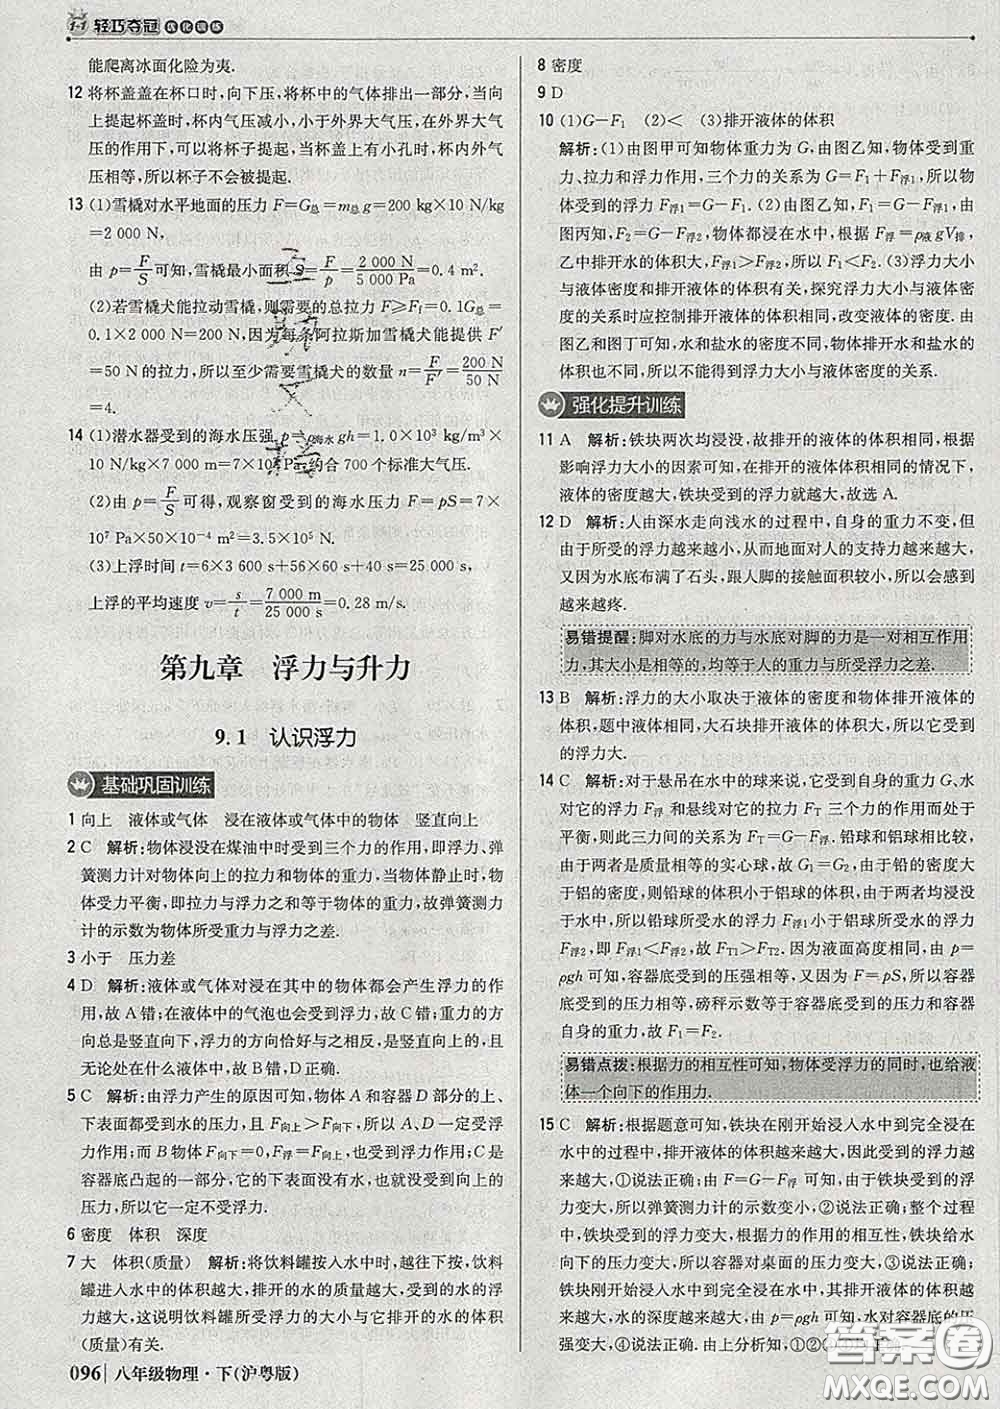 1+1 轻巧夺冠 优化训练
能爬离冰面化险为夷.
12 将杯盖盖在杯口时,向下压,将杯中的气体排出一部分,当向
上提起杯盖时,杯内气压减小,小于外界大气压,在外界大气
压的作用下,可以将杯子提起,当杯盖上有小孔时,杯内外气
压相等,所以杯子不会被提起.
13 (1)雪橇对水平地面的压力 F=G总=m总g=200 kg×10 N/kg
=2 000 N,
由 p=F/S 可知,雪橇最小面积 S=F/p=2 000 N/5 000 Pa=0.4 m².
(2)若雪橇犬能拉动雪橇,则需要的总拉力 F≥Ff=0.1G总=
0.1×2 000 N=200 N,因为每条阿拉斯加雪橇犬能提供 F′
=50 N的拉力,所以至少需要雪橇犬的数量 n=F/F′=200 N/50 N
=4.
14 (1)潜水器受到的海水压强 p=ρ海水gh=1.0×10³ kg/m³×
10 N/kg×7 000 m=7×10⁷ Pa,约合 700 个标准大气压.
(2)由 p=F/S 可得,观察窗受到的海水压力 F=pS=7×
10⁷ Pa×50×10⁻⁴ m²=3.5×10⁵ N.
(3)上浮时间 t=6×3 600 s+56×60 s+40 s=25 000 s,
上浮的平均速度 v=s/t=7 000 m/25 000 s=0.28 m/s.
第九章 浮力与升力
9.1 认识浮力
基础巩固训练
1 向上 液体或气体 浸在液体或气体中的物体 竖直向上
2 C 解析:物体浸没在煤油中时受到三个力的作用,即浮力、弹
簧测力计对物体向上的拉力和物体的重力,当物体静止时,物体
受力平衡,即拉力与浮力之和等于物体的重力,故弹簧测力
计的示数为物体所受重力与浮力之差.
3 小于 压力差
4 D 解析:液体或气体对浸在其中的物体都会产生浮力的作
用,故 A 错;在液体中的气泡也会受到浮力,故 C 错;重力的方
向总是竖直向下,浮力的方向恰好与之相反,是竖直向上,且
无论处在什么液体中,故 B 错,D 正确.
5 C 解析:由浮力产生的原因可知,物体 A 和容器 D 部分的上、
下表面都受到水的压力,且 F向上>F向下,所以 A、D 一定受浮
力的作用;而 B 物体 F向下=0,F浮=F向上,一定受浮力作用;C 是
容器底凸起的一部分,它的下表面没有水,也就没有向上的
压力,所以它一定不受浮力.
6 密度 体积 深度
7 大 体积(质量) 解析:将饮料罐按入水中时,越往下按,饮料
罐进入水中的体积越大,排开的水的质量越大,受到的水的浮力
越大,这说明饮料罐所受浮力的大小与它排开的水的体积
(质量)有关.
8 密度
9 D
10 (1)G−F₁ (2)< (3)排开液体的体积
解析:(1)由图甲可知物体重力为 G,由图乙知,物体受到重
力、拉力和浮力作用,三个力的关系为 G=F₁+F浮1,所以物
体受到的浮力 F浮1=G−F₁. (2)由图乙知,F₁=G−F浮1,由
图丙知,F₂=G−F浮2,物体都浸在水中,根据 F浮=ρ液gV排,
乙中排开水的体积大,F浮1>F浮2,所以 F₁<F₂. (3)浮力大小
与液体密度和排开液体的体积有关系,探究浮力大小与液体
密度的关系时应控制排开液体的体积相同,改变液体的密度. 由
图乙和图丁可知,水和盐水的密度不同,物体排开水和盐水的
体积也不同,所以不能得到浮力大小与液体密度的关系.
强化提升训练
11 A 解析:铁块两次均浸没,故排开的液体的体积相同,根据
影响浮力大小的因素可知,在排开的液体体积相同的情况下,
液体的密度越大,铁块受到的浮力就越大,故选 A.
12 D 解析:人由深水走向浅水的过程中,自身的重力不变,但
由于所受的浮力越来越小,从而地面对人的支持力越来越大,
又因为水底布满了石头,跟人脚的接触面积较小,所以会感到
越来越疼.
易错提醒:脚对水底的力与水底对脚的力是一对相互作用
力,其大小是相等的,均等于人的重力与所受浮力之差.
13 B 解析:浮力的大小取决于液体的密度和物体排开液体的
体积,题中液体相同,大石块排开液体的体积大,故其所受浮
力大.
14 C 解析:对于悬吊在水中的球来说,它受到自身的重力 G、水
对它的浮力 F浮 和悬线对它的拉力 FT 三个力的作用而处于
平衡,则此三力间的关系为 FT=G−F浮. 铅球和铝球相比较,
由于两者是质量相等的实心球,故 G₁=G₂,由于铅的密度大
于铝的密度,则铅球的体积小于铝球的体积,由于两者均浸没
于水中,所以铅球所受水的浮力 F浮1 小于铝球所受水的浮力
F浮2,即 F浮1<F浮2,故 FT1>FT2. 因为液面高度相同,由 p=
ρgh 可知,容器底受到的压强相等,又因为 F=pS,所以容器
底受到的压力相等,磅秤示数等于容器底受到的压力和容器
自身的重力,故 F₁=F₂.
易错点拨:根据力的相互性可知,物体受浮力的同时,也给液
体一个向下的作用力.
15 C 解析:根据题意可知,铁块在刚开始浸入水中到完全浸在
水中的过程中,排开液体的体积越来越大,因此受到的浮力越
来越大,①说法正确;由 F=G−F浮 可知,铁块受到的浮力变
大,所以弹簧测力计的示数变小,②说法正确;整个过程中,
铁块受到水的浮力变大,根据力的作用的相互性,铁块对水的
压力变大,所以水和容器对桌面的压力变大,③说法正确;
铁块刚开始浸入水中到完全浸在水中,其排开液体的体积越来越
大,水的深度越来越大,由 p=ρgh 可知,水对容器底的压
强变大,④说法正确. 由上分析知,
096 八年级物理·下(沪粤版)
答案圈
MXQE.COM